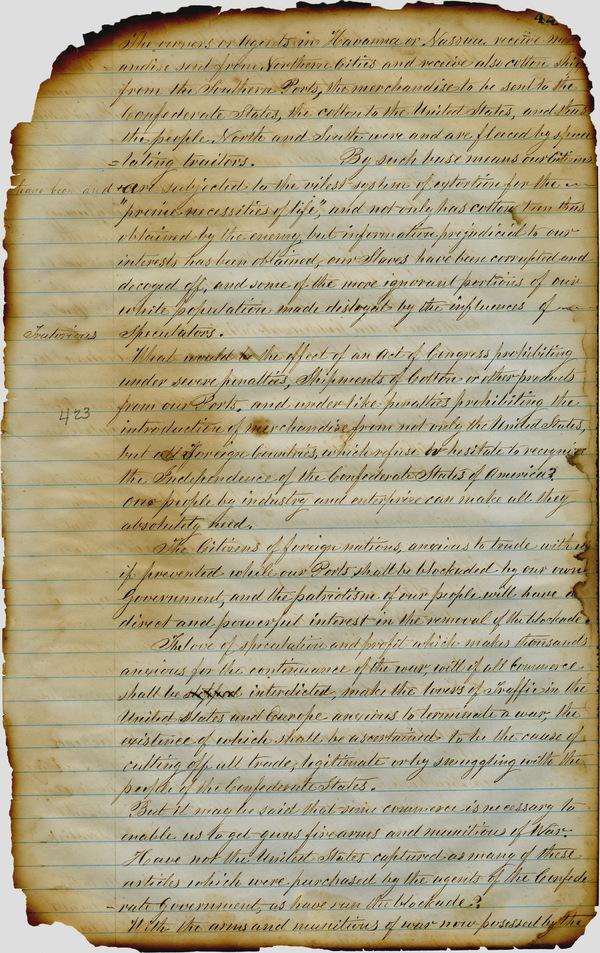 44
The owners or Agents in Havanna or Nassau receive mer
andise sent from Northern Cities and receive also cotton ship
from the Southern Ports, the merchandise to be sent to the
Confederate States, the cotton to the United States, and thus
the people North and South were and are fleaced by specu
-lating traitors. By such base means our Citizens
have been and are subjected to the vilest system of extortion for the
"prime necessities of life", and not only has cotton been thus
obtained by the enemy, but information prejudicial to our
interests has been obtained, our Slaves have been corrupted and
decoyed off, and some of the more ignorant portions of our
white population made disloyal by the influences of
Traitorious Speculators.
What would be the effect of an Act of Congress prohibiting
under severe penalties, Shipments of Cotton or other products
423
from our Ports, and under like penalties prohibiting the
introduction of merchandise from not only the United States,
but all Foreign Countries, which refuse or hesitate to recognize
the Independence of the Confederate States of America?
Our people by industry and enterprize can make all they
absolutely need.
The Citizens of foreign nations, anxious to trade with us
if prevented while our Ports shall be blockaded by our own
Government, and the patriotism of our people will have a
direct and powerful interest in the removal of the blockade.
The love of speculation and profit which makes thousands
anxious for the continuance of the war, will if all Commerce
shall be interdicted, make the lovers of Traffic in the
United States and Europe anxious to terminate a war, the
existence of which shall be ascertained to be the cause of
cutting off all trade, legitimate or by smuggling with the
people of the Confederate States.
But it may be said that some commerce is necessary to
enable us to get guns fire arms and munitions of War.
Have not the United States captured as many of these
articles which were purchased by the agents of the Confede
-rate Government, as have run the blockade?
With the arms and munitions of war now posessed by the